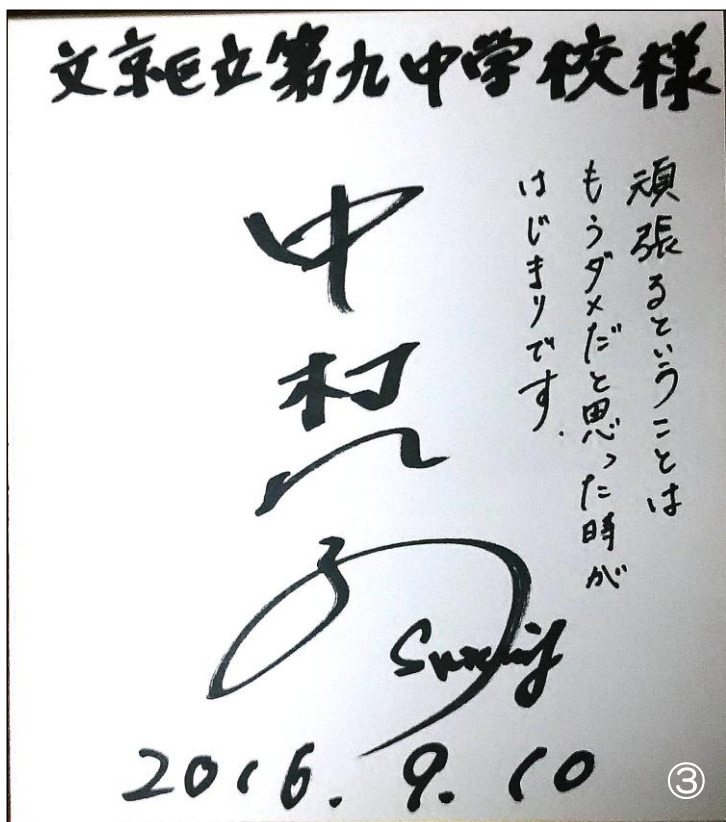 文京区立第九中学校様
頑張るということは
もうダメだと思った時が
はじまりです.
中村
2016.9.10
③